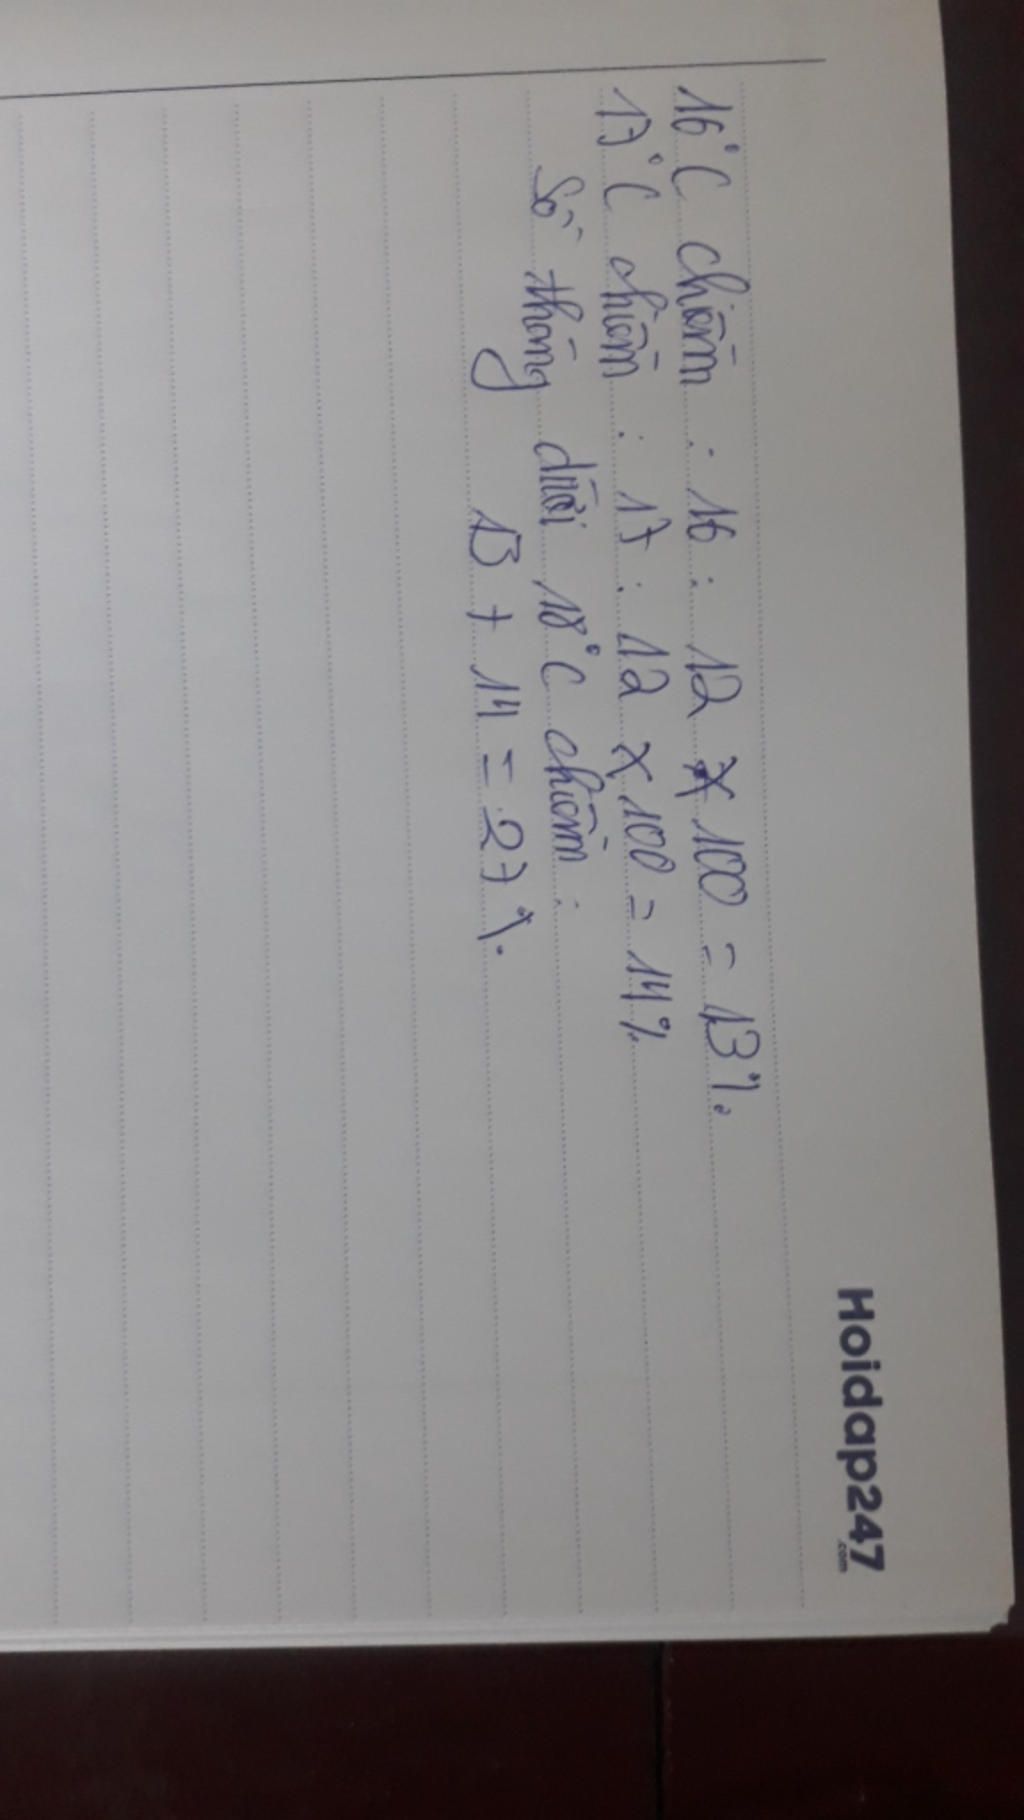 Hoidap247
.com
16°C chiếm : 16 : 12 x 100 = 13%.
17°C chiếm : 17 : 12 x 100 = 14%
Số tháng dưới 18°C chiếm :
13 + 14 = 27%.